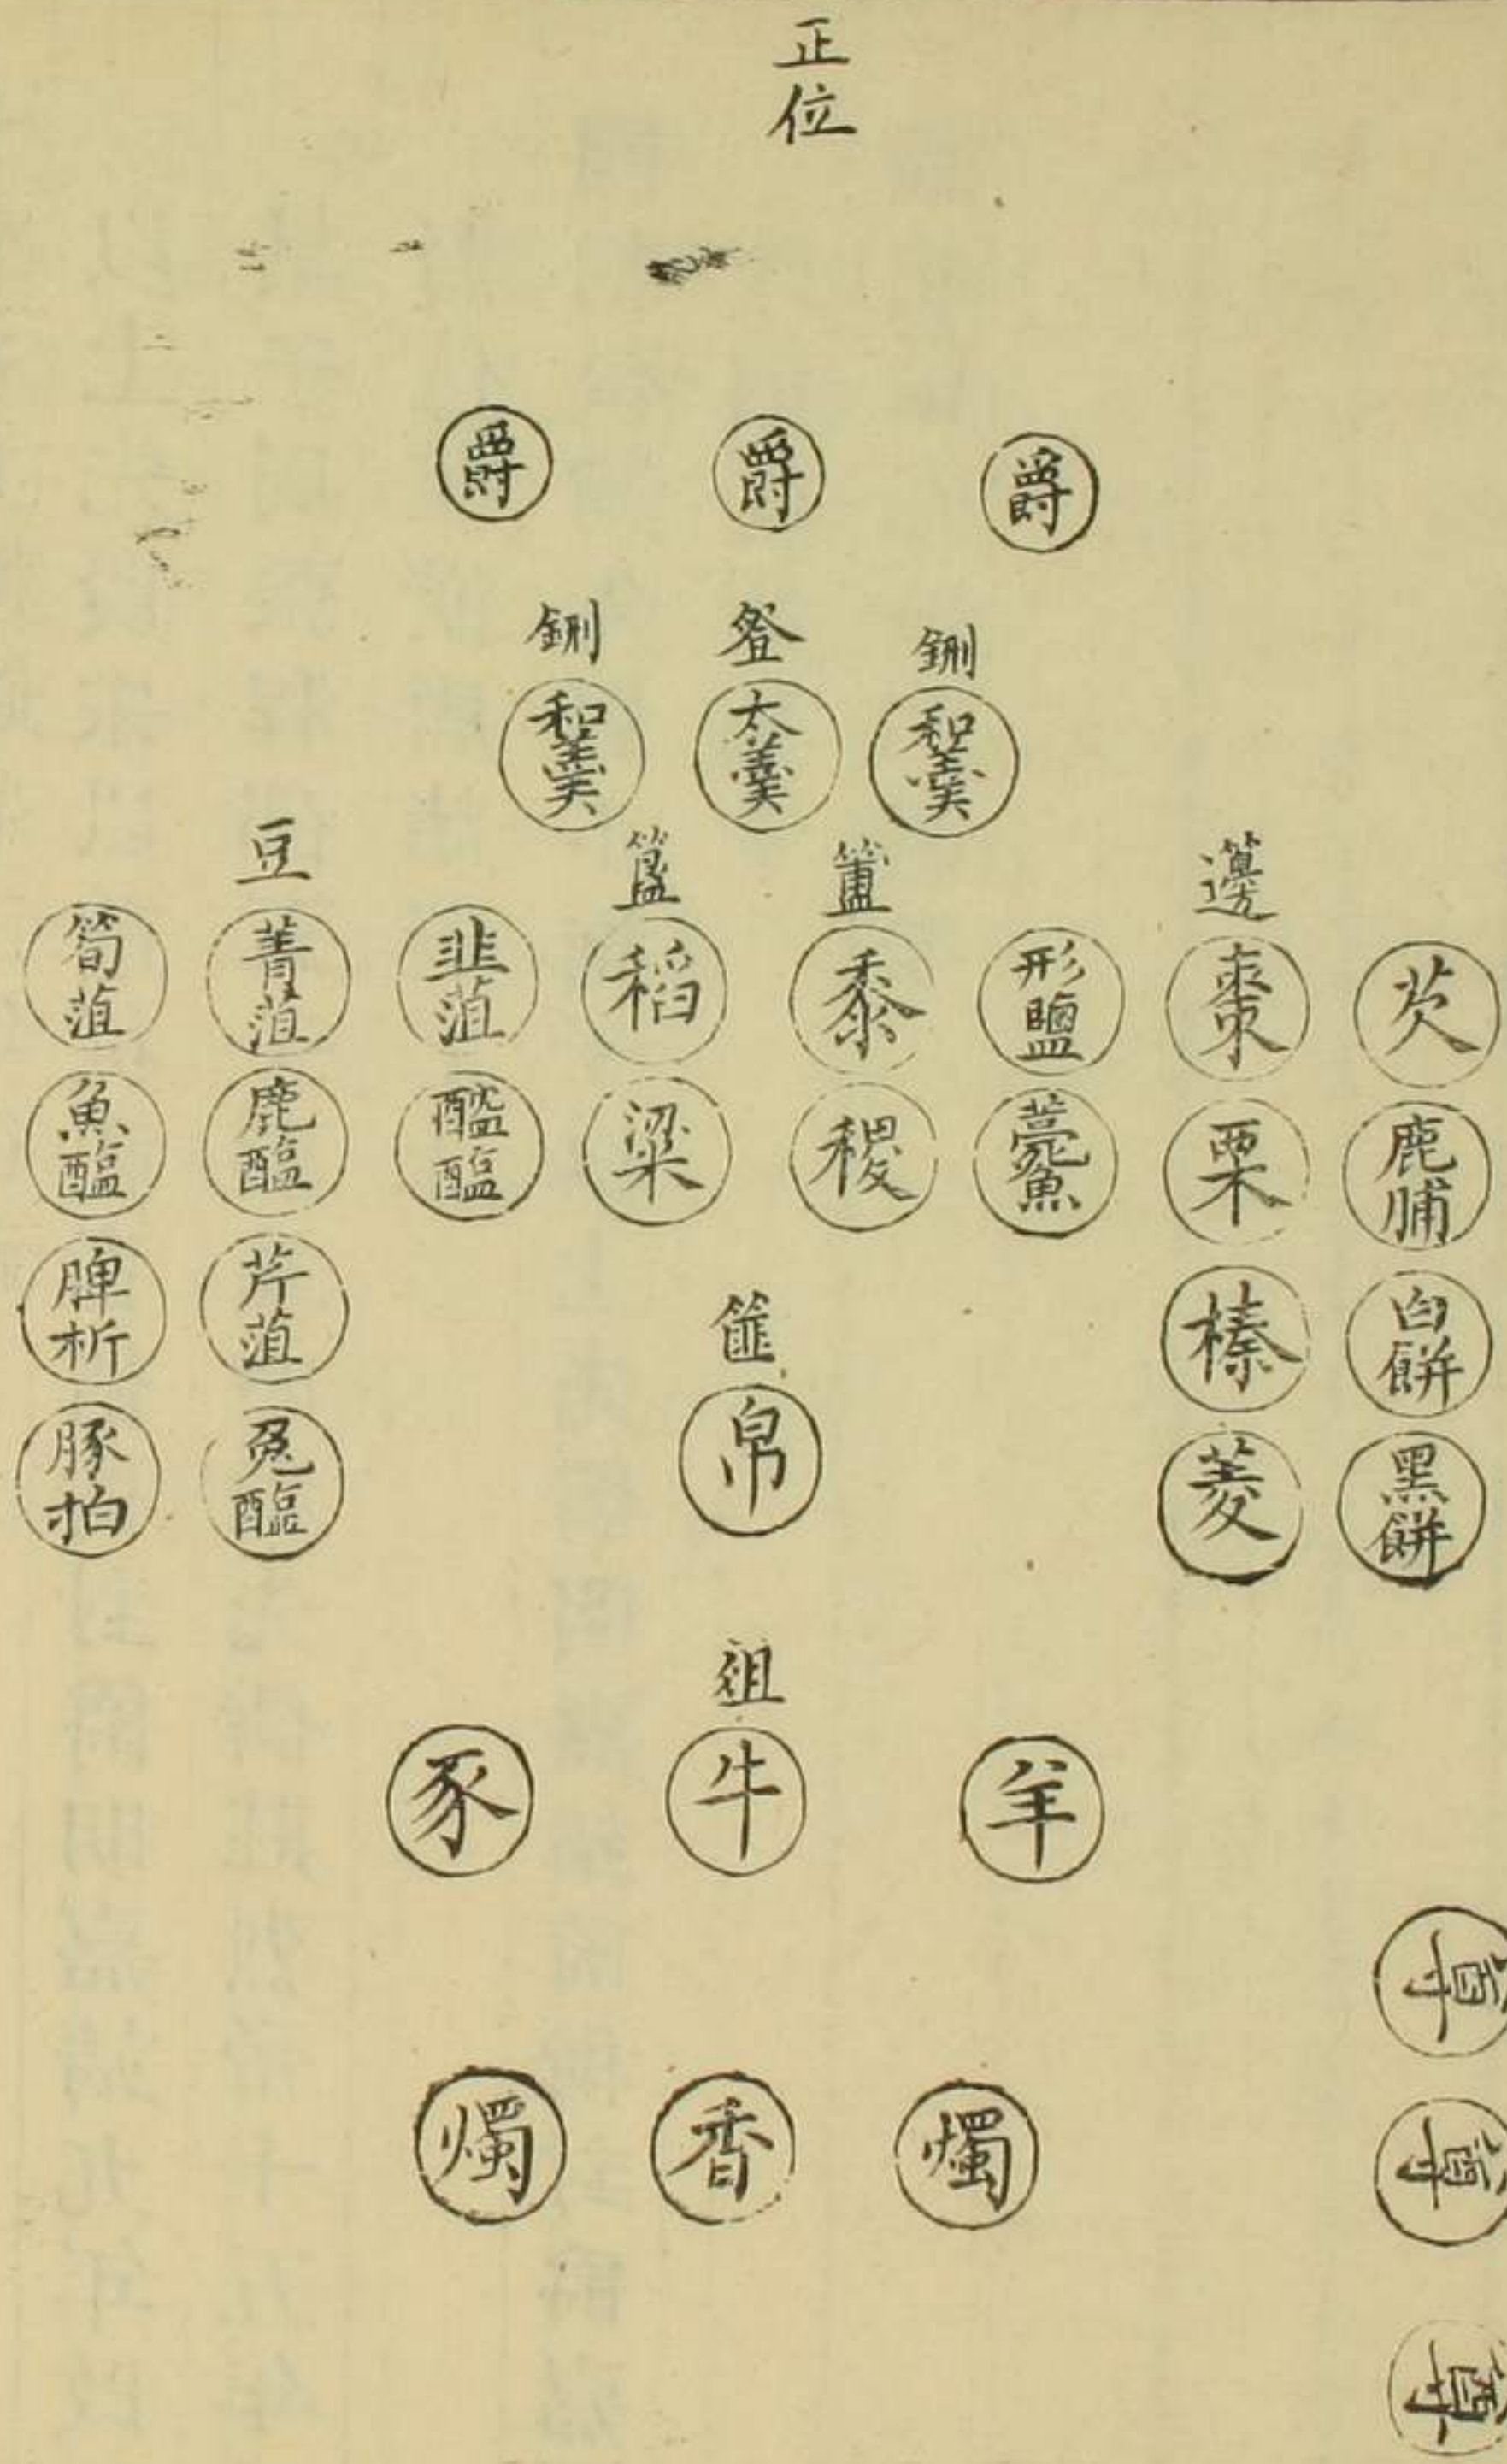 正位
爵 爵 爵
鉶 登 鉶
和羹 太羹 和羹
豆 簋 簠 籩
筍菹 菁菹 韭菹 稻 黍 形鹽 棗 芡
魚醢 鹿醢 醓醢 粱 稷 薧魚 栗 鹿脯
脾析 芹菹 榛 白餅
篚
豚拍 兔醢 帛 菱 黑餅
祖
豕 牛 羊
尊
燭 香 燭 尊
尊